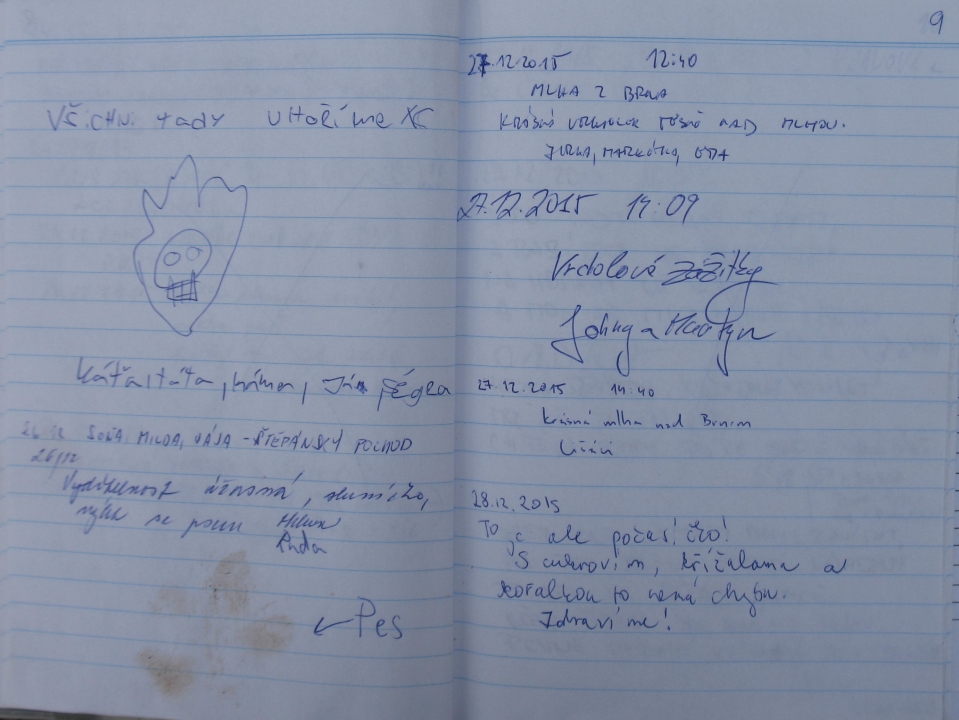 Všichni tady uhoříme XC
Káťa, táta, máma, Ján, ségra
26.12 SOŇA, MILDA, VÁJA - ŠTĚPÁNSKÝ POCHOD
26/12
Vyditelnost úžasná, sluníčko,
se psem
← Pes
9
27.12.2015 12:40
MLHA Z BRNA
KRÁSNÝ VRCHOLEK TĚSNĚ NAD MLHOU.
JIRKA, MARKÉTKA,
27.12.2015 14:09
Vrdolová zážitky
Johny a Martyn
27.12.2015 14:40
Krásná mlha nad Brnem
Lišáci
28.12.2015
To je ale počasíčko!
S cukrovím, křížalama a
kořalkou to nemá chybu.
Zdravíme!